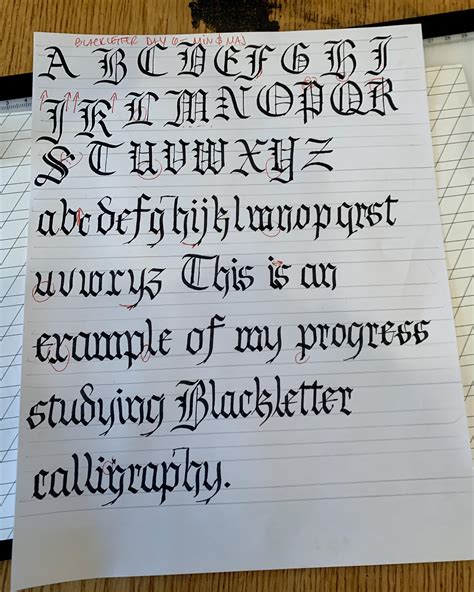 BLACKLETTER DAY 6 - MIN & MAJ
A B C D E F G H I
J K L M N O P Q R
S T U V W X Y Z
abcdefghijklmnopqrst
uvwxyz This is an
example of my progress
studying Blackletter
calligraphy.